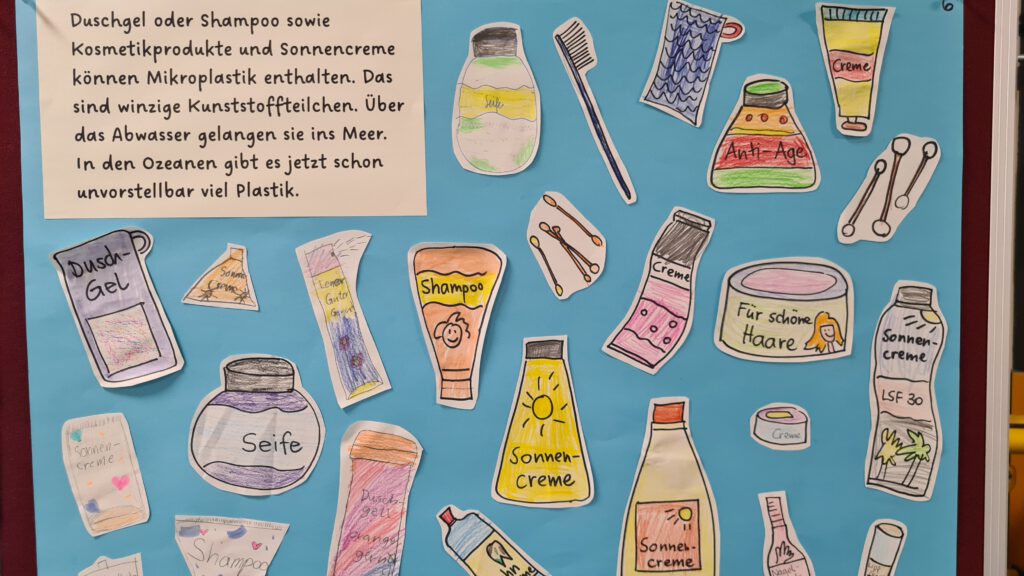 Duschgel oder Shampoo sowie
Kosmetikprodukte und Sonnencreme
können Mikroplastik enthalten. Das
sind winzige Kunststoffteilchen. Über
das Abwasser gelangen sie ins Meer.
In den Ozeanen gibt es jetzt schon
unvorstellbar viel Plastik.
6
Seife
Creme
Anti-Age
Dusch-
GeL
Sonnen
Creme
Shampoo
Creme
Für schöne
Haare
Sonnen-
creme
LSF 30
Seife
Sonnen-
creme
Creme
Sonnen-
creme
Dusch-
gell
Sonnen-
creme
Shampoo